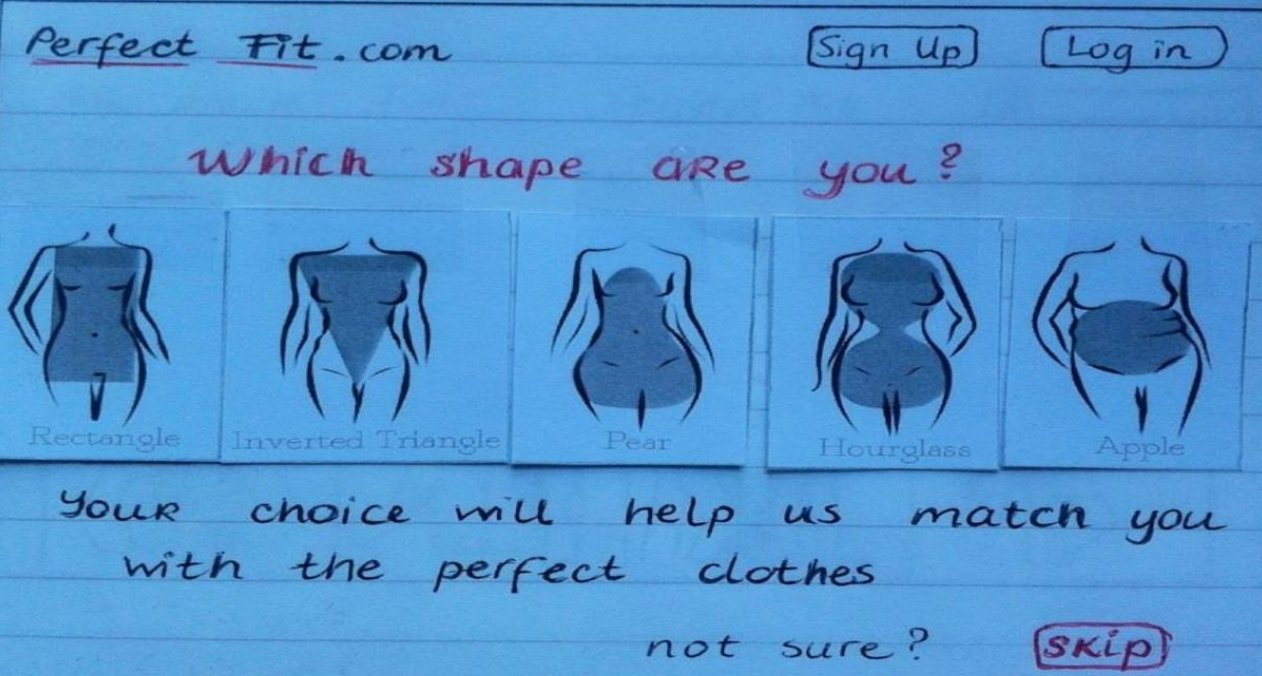 Perfect Fit.com Sign Up Log in
Which shape are you?
Rectangle Inverted Triangle Pear Hourglass Apple
Your choice will help us match you
with the perfect clothes
not sure? Skip